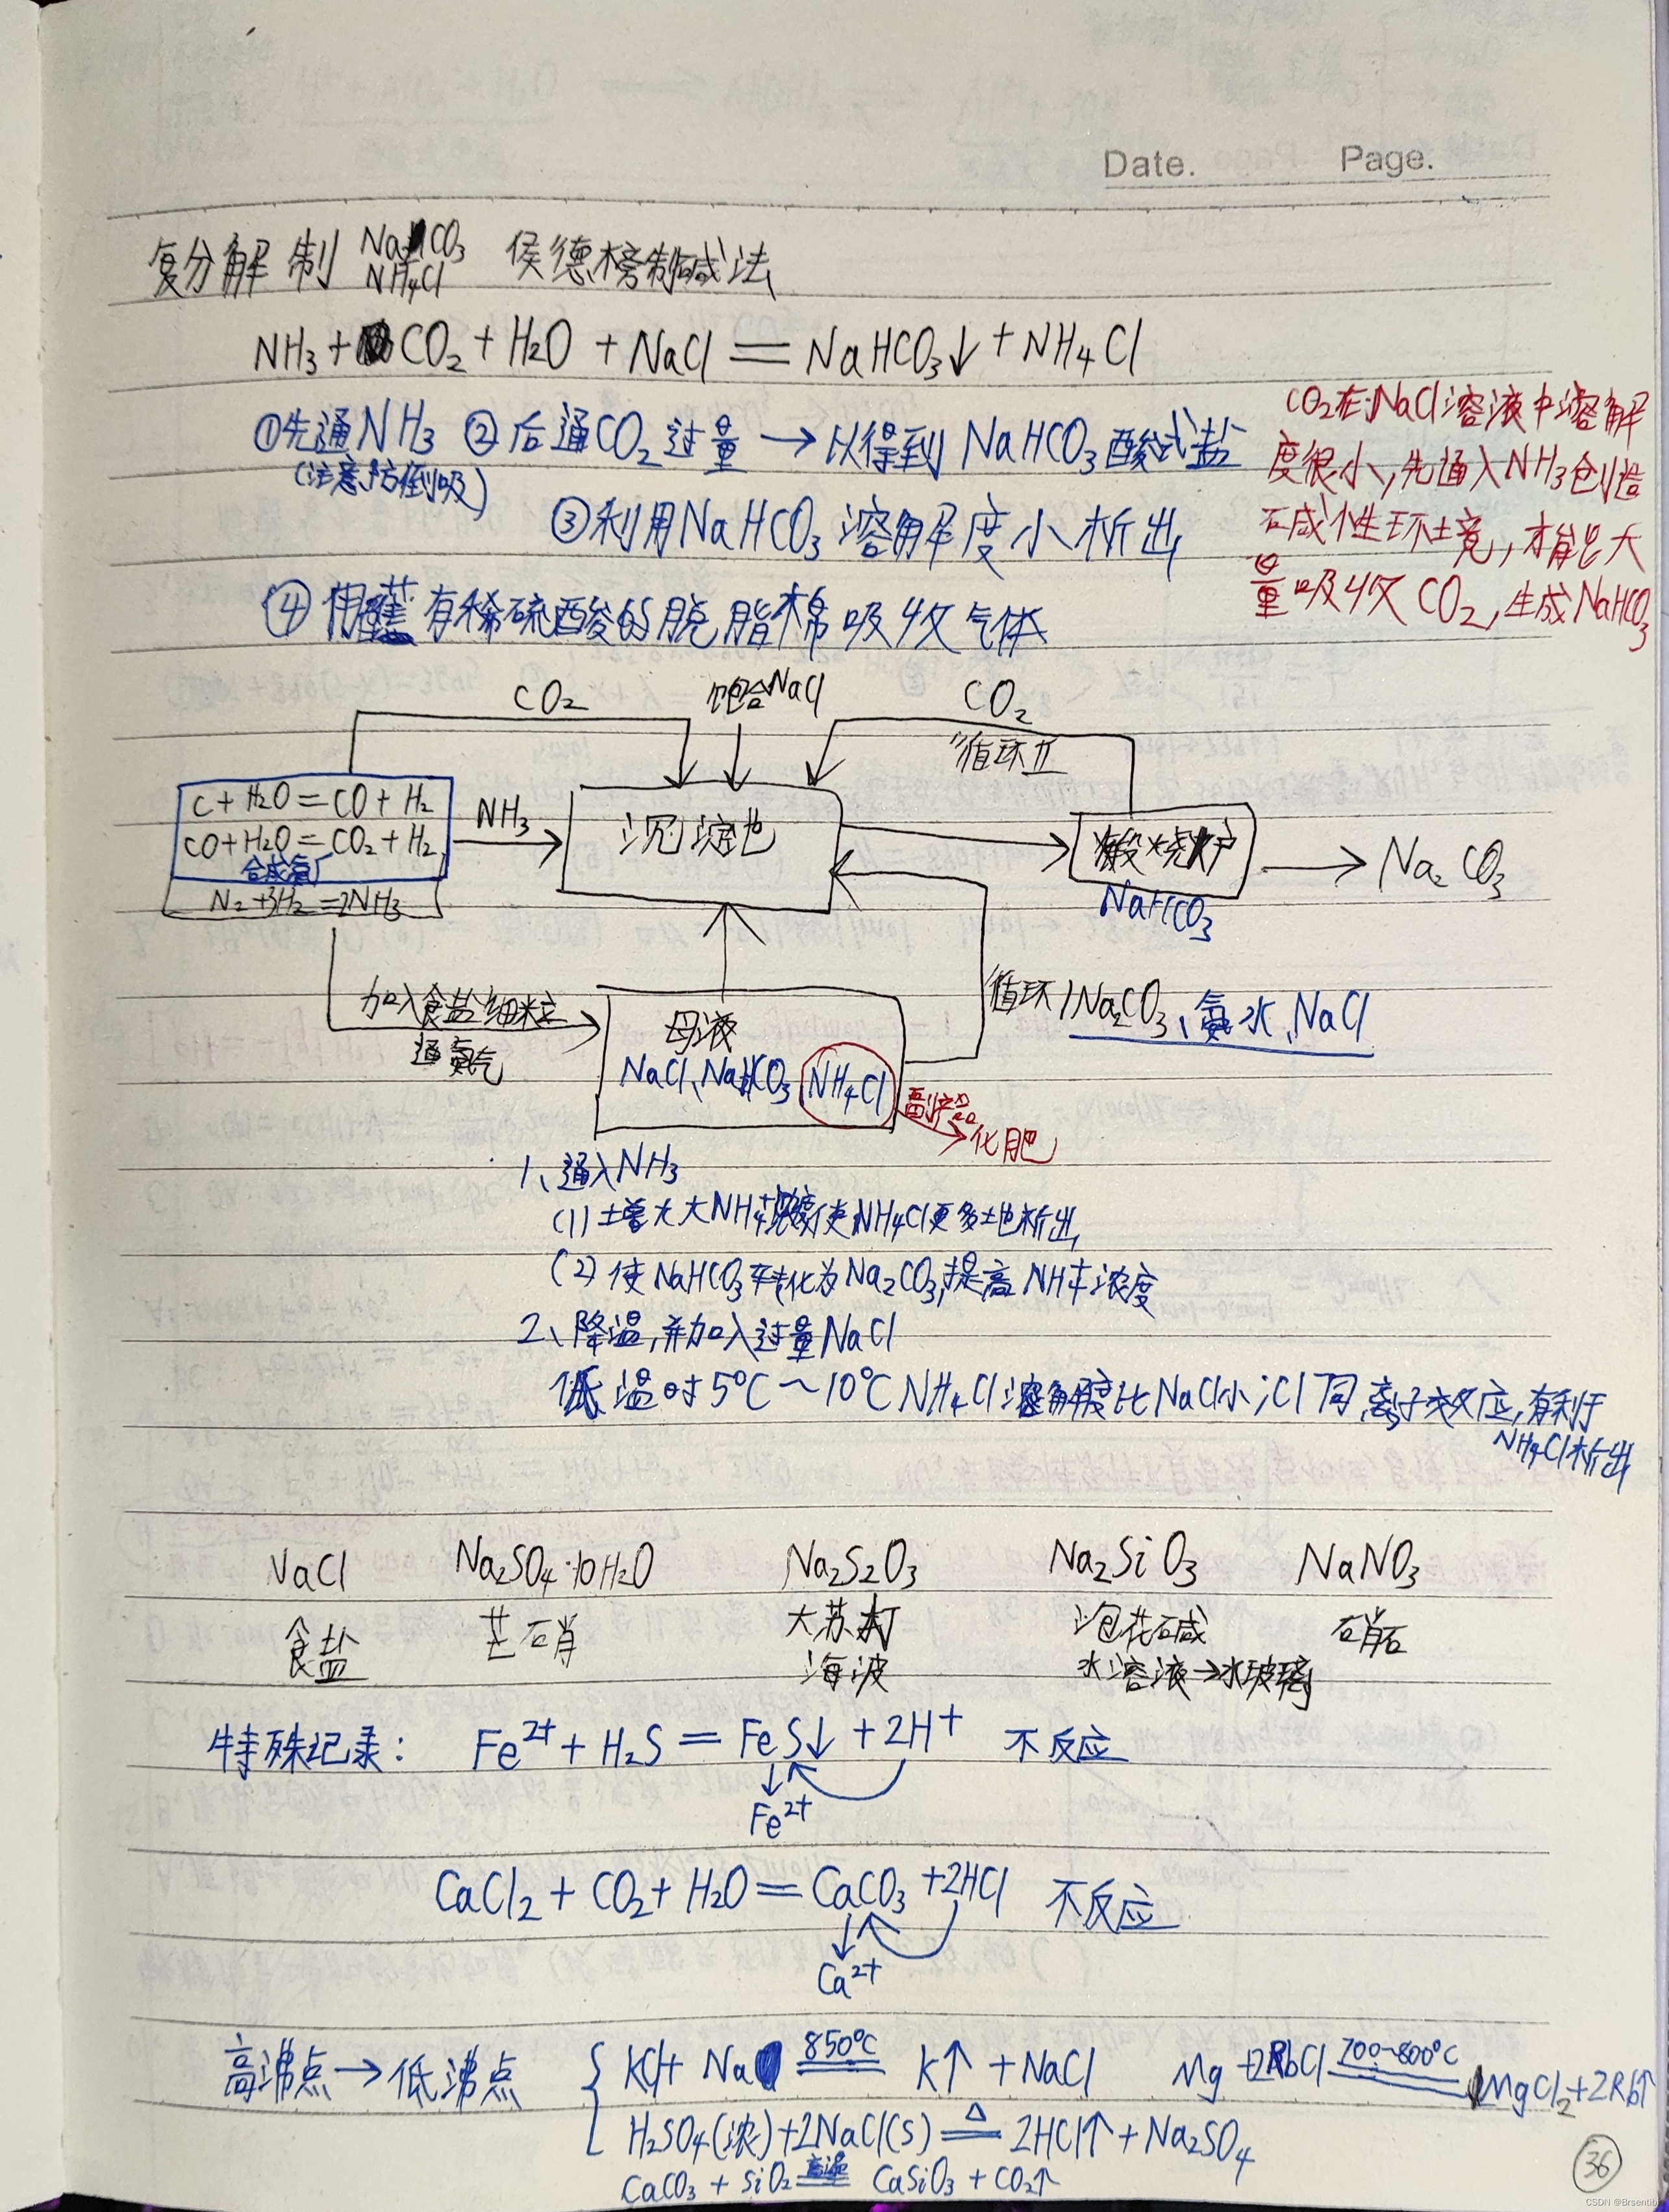 Date. Page.
复分解制 Na2CO3 NH4Cl 侯德榜制碱法
NH3 + CO2 + H2O + NaCl = NaHCO3↓ + NH4Cl
①先通NH3 ②后通CO2过量 → 以得到NaHCO3酸式盐
(注意防倒吸)
③利用NaHCO3溶解度小析出
④用蘸有稀硫酸的脱脂棉吸收气体
CO2在NaCl溶液中溶解
度很小,先通入NH3创造
碱性环境,才能大
量吸收CO2,生成NaHCO3
CO2 饱合NaCl CO2
循环Ⅱ
C + H2O = CO + H2
CO + H2O = CO2 + H2
合成氨厂
N2 + 3H2 = 2NH3
NH3
沉淀池
煅烧炉
NaHCO3
Na2CO3
加入食盐细粒
通氨气
母液
NaCl、NaHCO3 NH4Cl
循环1 Na2CO3、氨水、NaCl
副产品
化肥
1、通入NH3
(1)增大NH4+浓度使NH4Cl更多地析出
(2)使NaHCO3转化为Na2CO3,提高NH4+浓度
2、降温,并加入过量NaCl
低温时5℃~10℃NH4Cl溶解度比NaCl小;Cl同离子效应,有利于
NH4Cl析出
NaCl Na2SO4·10H2O Na2S2O3 Na2SiO3 NaNO3
食盐 芒硝 大苏打 泡花碱 硝石
海波 水溶液→水玻璃
特殊记录: Fe2+ + H2S = FeS↓ + 2H+ 不反应
Fe2+
CaCl2 + CO2 + H2O = CaCO3 + 2HCl 不反应
Ca2+
高沸点→低沸点 KCl + Na 850℃ K↑ + NaCl Mg + 2RbCl 700~800℃ MgCl2 + 2Rb↑
H2SO4(浓) + 2NaCl(s) △ 2HCl↑ + Na2SO4
CaCO3 + SiO2 高温 CaSiO3 + CO2↑
36
CSDN @Brsentibi